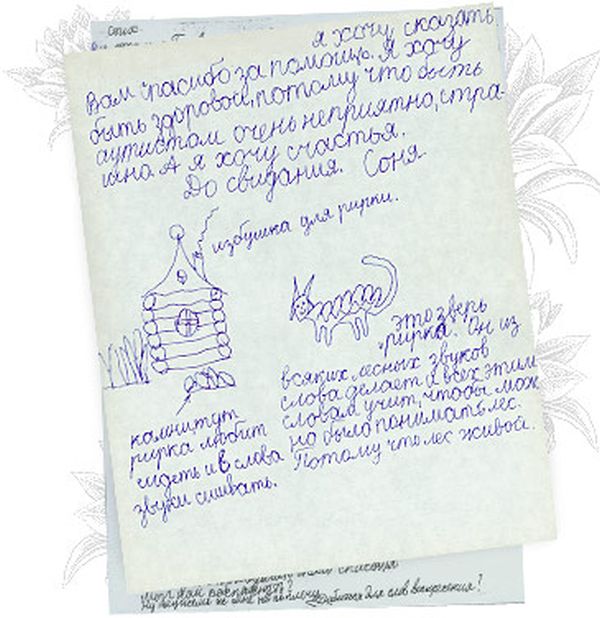 Стих
я хочу сказать
Вам спасибо за помощь. Я хочу
быть здоровой, потому что быть
аутистом очень неприятно, стра-
шно. А я хочу счастья.
До свидания. Соня
избушка для рирки.
это зверь
"рирка". Он из
всяких лесных звуков
слова делает и всех этим
словам учит, чтобы мож
но было понимать лес.
Потому что лес живой.
камни тут
рирка любит
сидеть и в слова
звуки сшивать.
для слов воскресения?